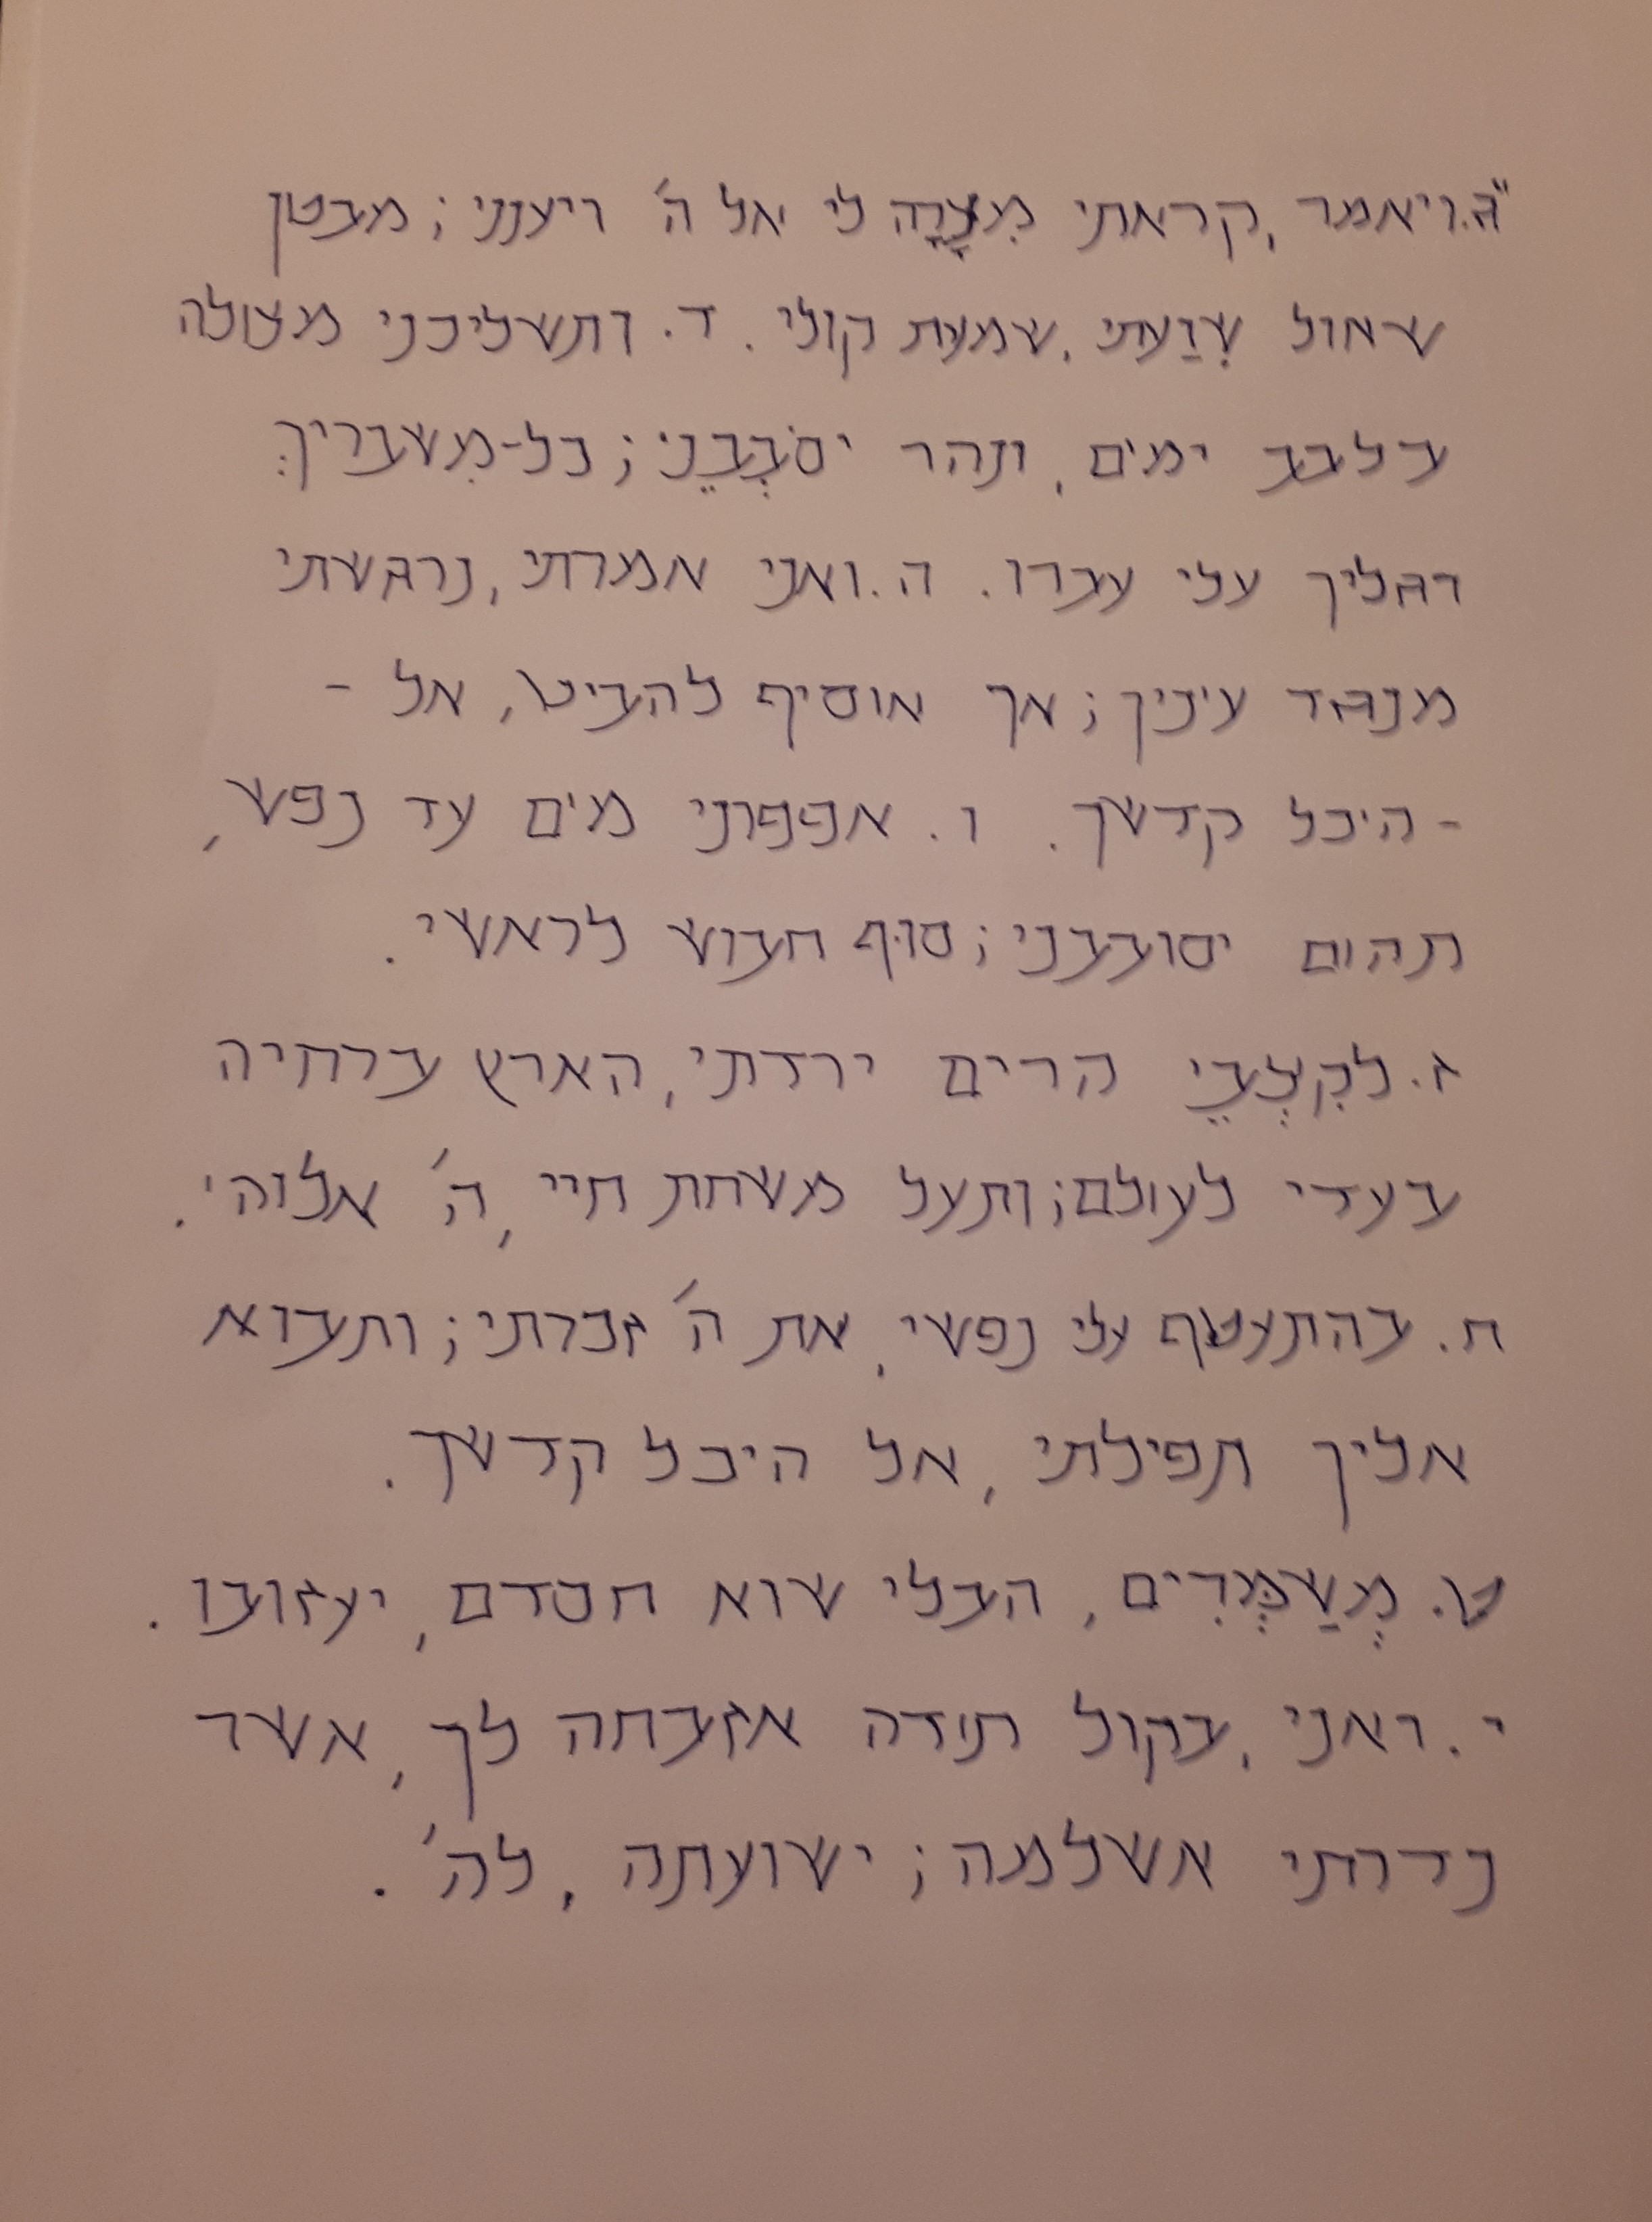 "ג. ויאמר, קראתי מִצָּרָה לי אל ה' ויענני; מבטן
שאול שִוַעתי, שמעת קולי. ד. ותשליכני מצולה
בלבב ימים, ונהר יסֹבְבֵני; כל-מִשבריךְ
וגליך עלי עברו. ה. ואני אמרתי, נרגשתי
מנגד עיניך; אך אוסיף להביט, אל -
- היכל קדשך. ו. אפפוני מים עד נפש,
תהום יסובבני; סוף חבוש לראשי.
ז. לקִצְבֵי הרים ירדתי, הארץ ברחיה
בעדי לעולם; ותעל משחת חיי, ה' אלוהי.
ח. בהתעטף עלי נפשי, את ה' זכרתי; ותבוא
אליך תפילתי, אל היכל קדשך.
ט. מְשַמְּרִים, הבלי שוא חסדם, יעזובו.
י. ואני, בקול תודה אזבחה לך, אשר
נדרתי אשלמה; ישועתה, לה'.